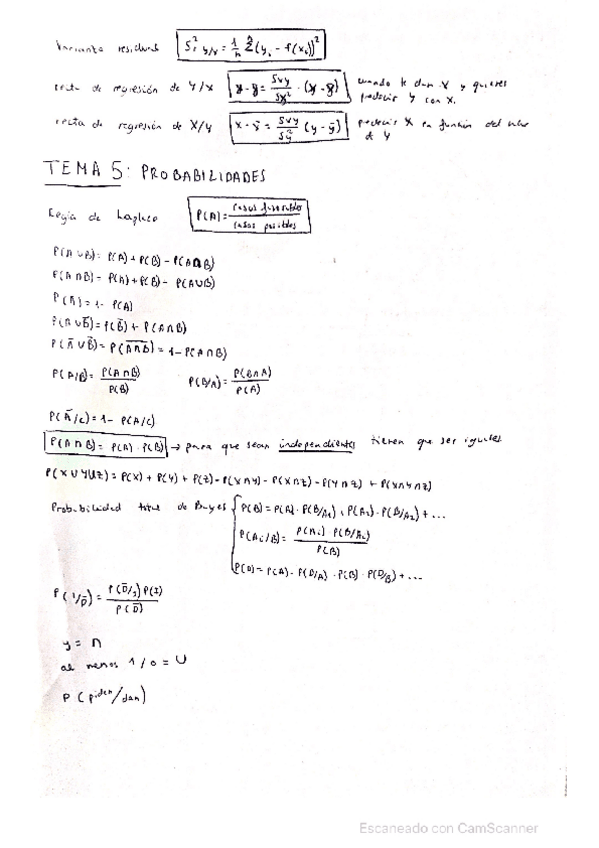 Varianza residual S²r y/x = 1/n Σ(yi - f(xi))²
recta de regresión de Y/X y - ȳ = Sxy/Sx² · (x - x̄) cuando te dan X y quieres
predecir Y con X.
recta de regresión de X/Y x - x̄ = Sxy/Sy² (y - ȳ) predecir X en función del valor
de Y
TEMA 5: PROBABILIDADES
Regla de Laplace P(A) = casos favorables / casos posibles
P(A∪B) = P(A) + P(B) - P(A∩B)
P(A∩B) = P(A) + P(B) - P(A∪B)
P(Ā) = 1 - P(A)
P(A∪B̄) = P(B̄) + P(A∩B)
P(Ā∪B̄) = P(A∩B)‾ = 1 - P(A∩B)
P(A/B) = P(A∩B)/P(B) P(B/A) = P(B∩A)/P(A)
P(Ā/C) = 1 - P(A/C)
P(A∩B) = P(A) · P(B) → para que sean independientes tienen que ser iguales
P(X∪Y∪Z) = P(X) + P(Y) + P(Z) - P(X∩Y) - P(X∩Z) - P(Y∩Z) + P(X∩Y∩Z)
Probabilidad total de Bayes P(B) = P(A₁) · P(B/A₁) + P(A₂) · P(B/A₂) + ...
P(Ai/B) = P(Ai) · P(B/Ai) / P(B)
P(D) = P(A) · P(D/A) · P(B) · P(D/B) + ...
P(1/D̄) = P(D̄/1) P(1) / P(D̄)
y = ∩
al menos 1 / o = ∪
P(piden/dan)
Escaneado con CamScanner